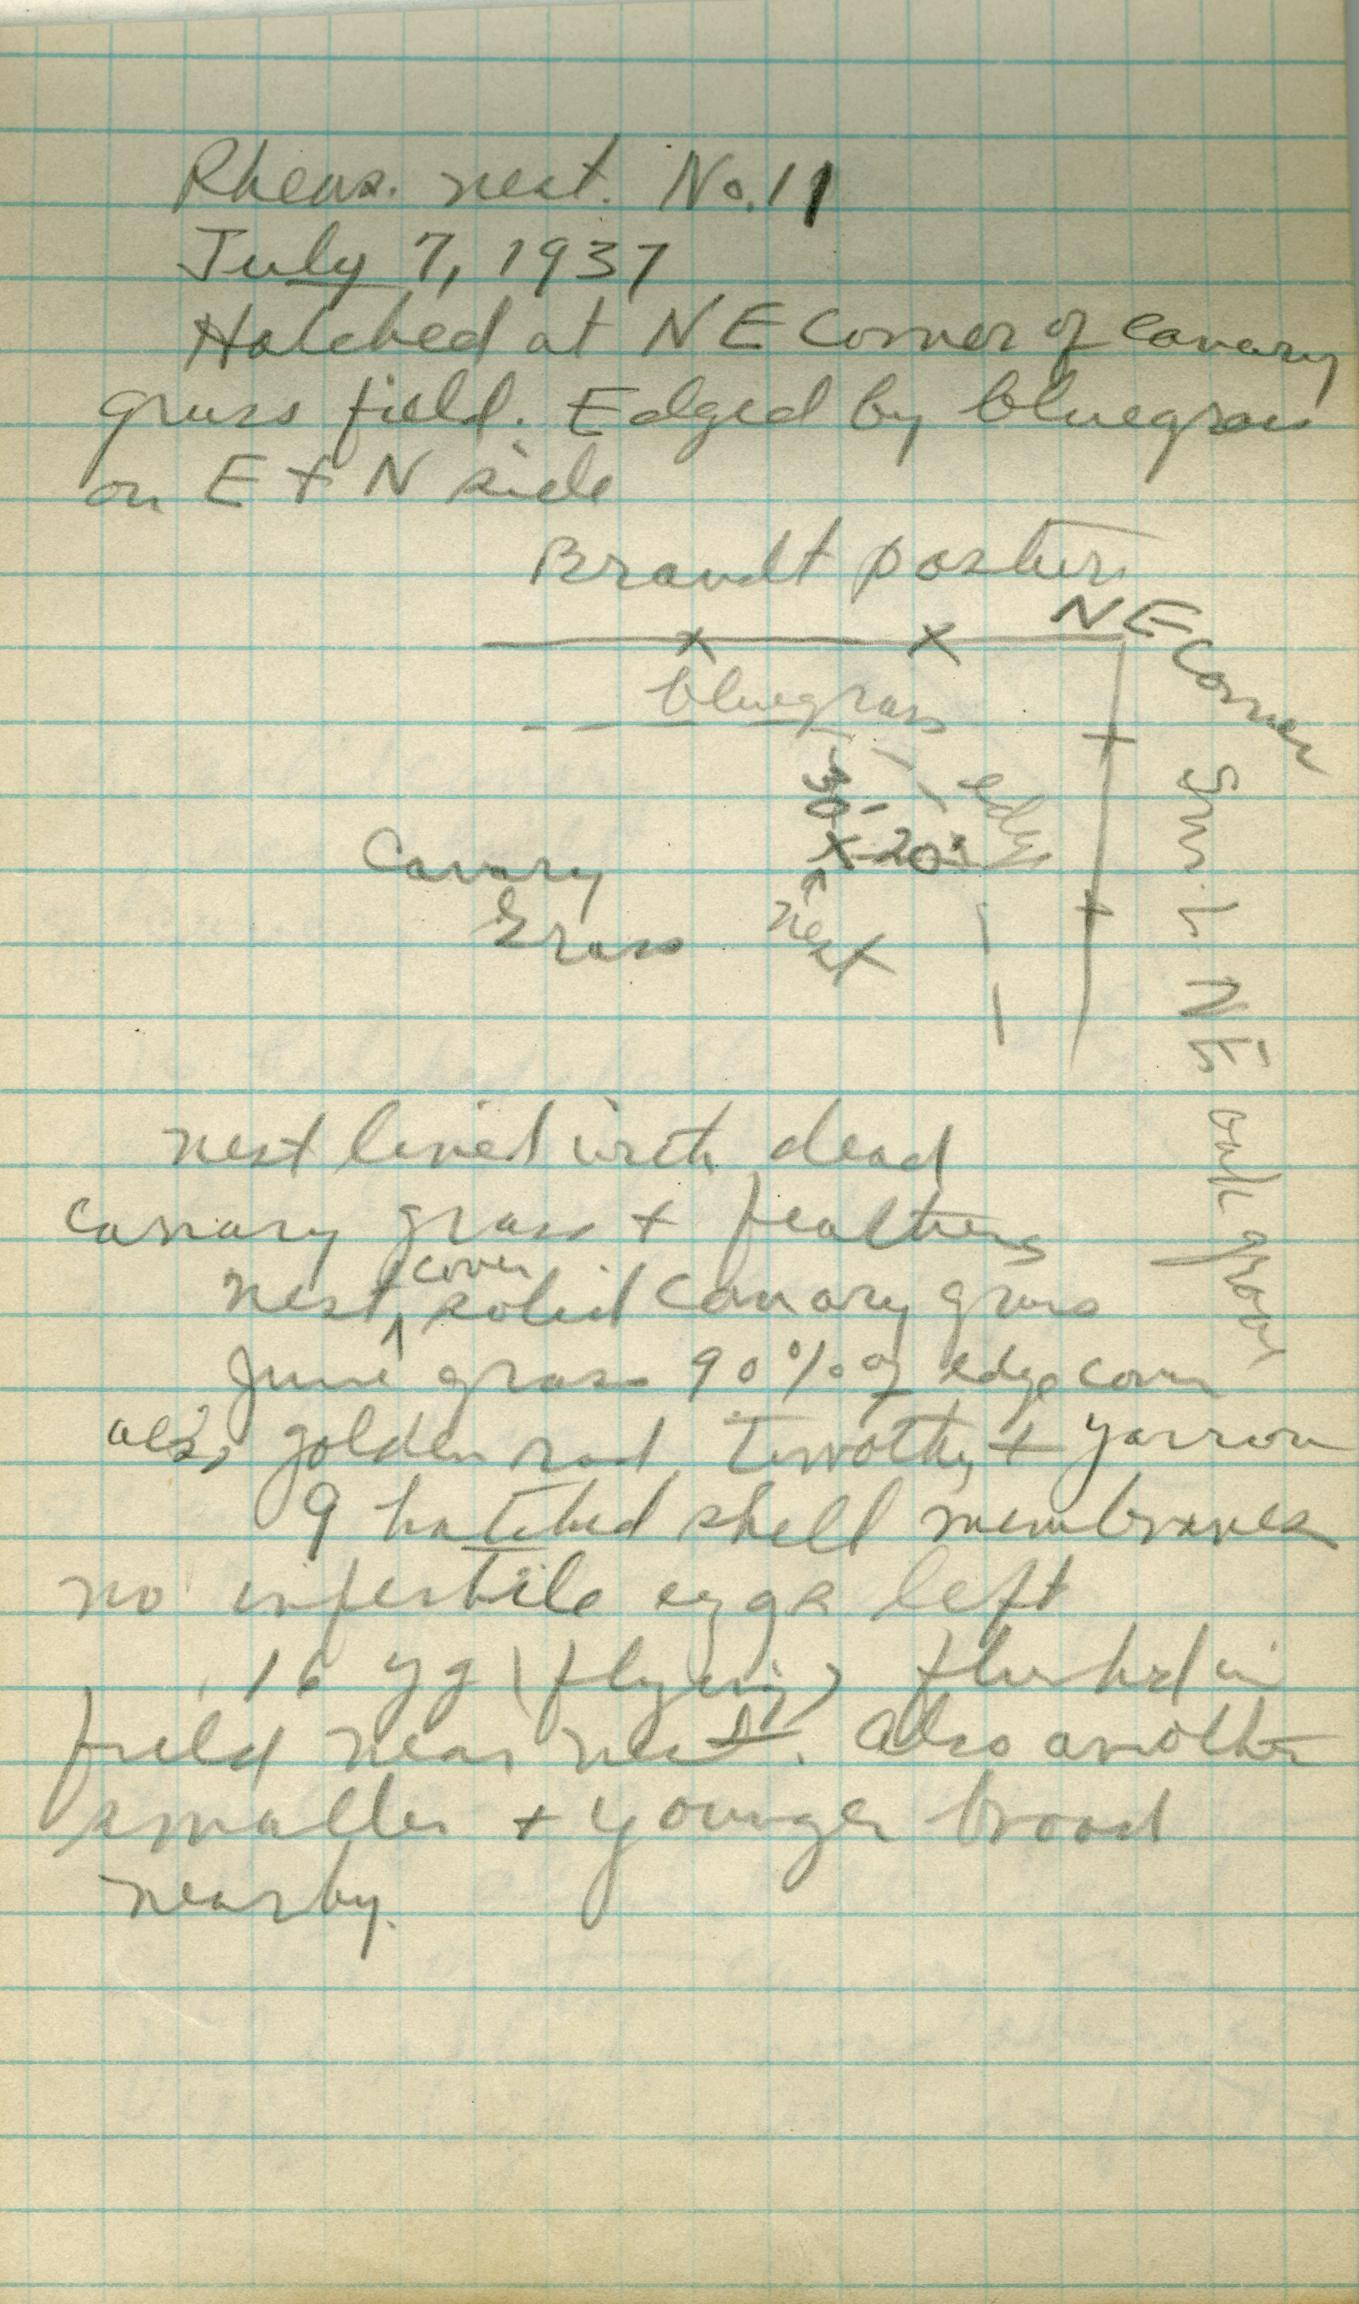 Pheas. nest. No. 11
July 7, 1937
Hatched at NE Corner of Canary
grass field. Edged by bluegrass
on E + N side
Brandt pasture
NE Corner
bluegrass
30'
edge
X 20'
Canary
Grass
nest
NE oak grove
nest lined with dead
canary grass + feathers
nest cover solid canary grass
June grass 90% of edge cover
also golden rod, Timothy + yarrow
9 hatched shell membranes
no infertile eggs left
16 yg (flying) flushed in
field near nest. Also another
smaller + younger brood
nearby.